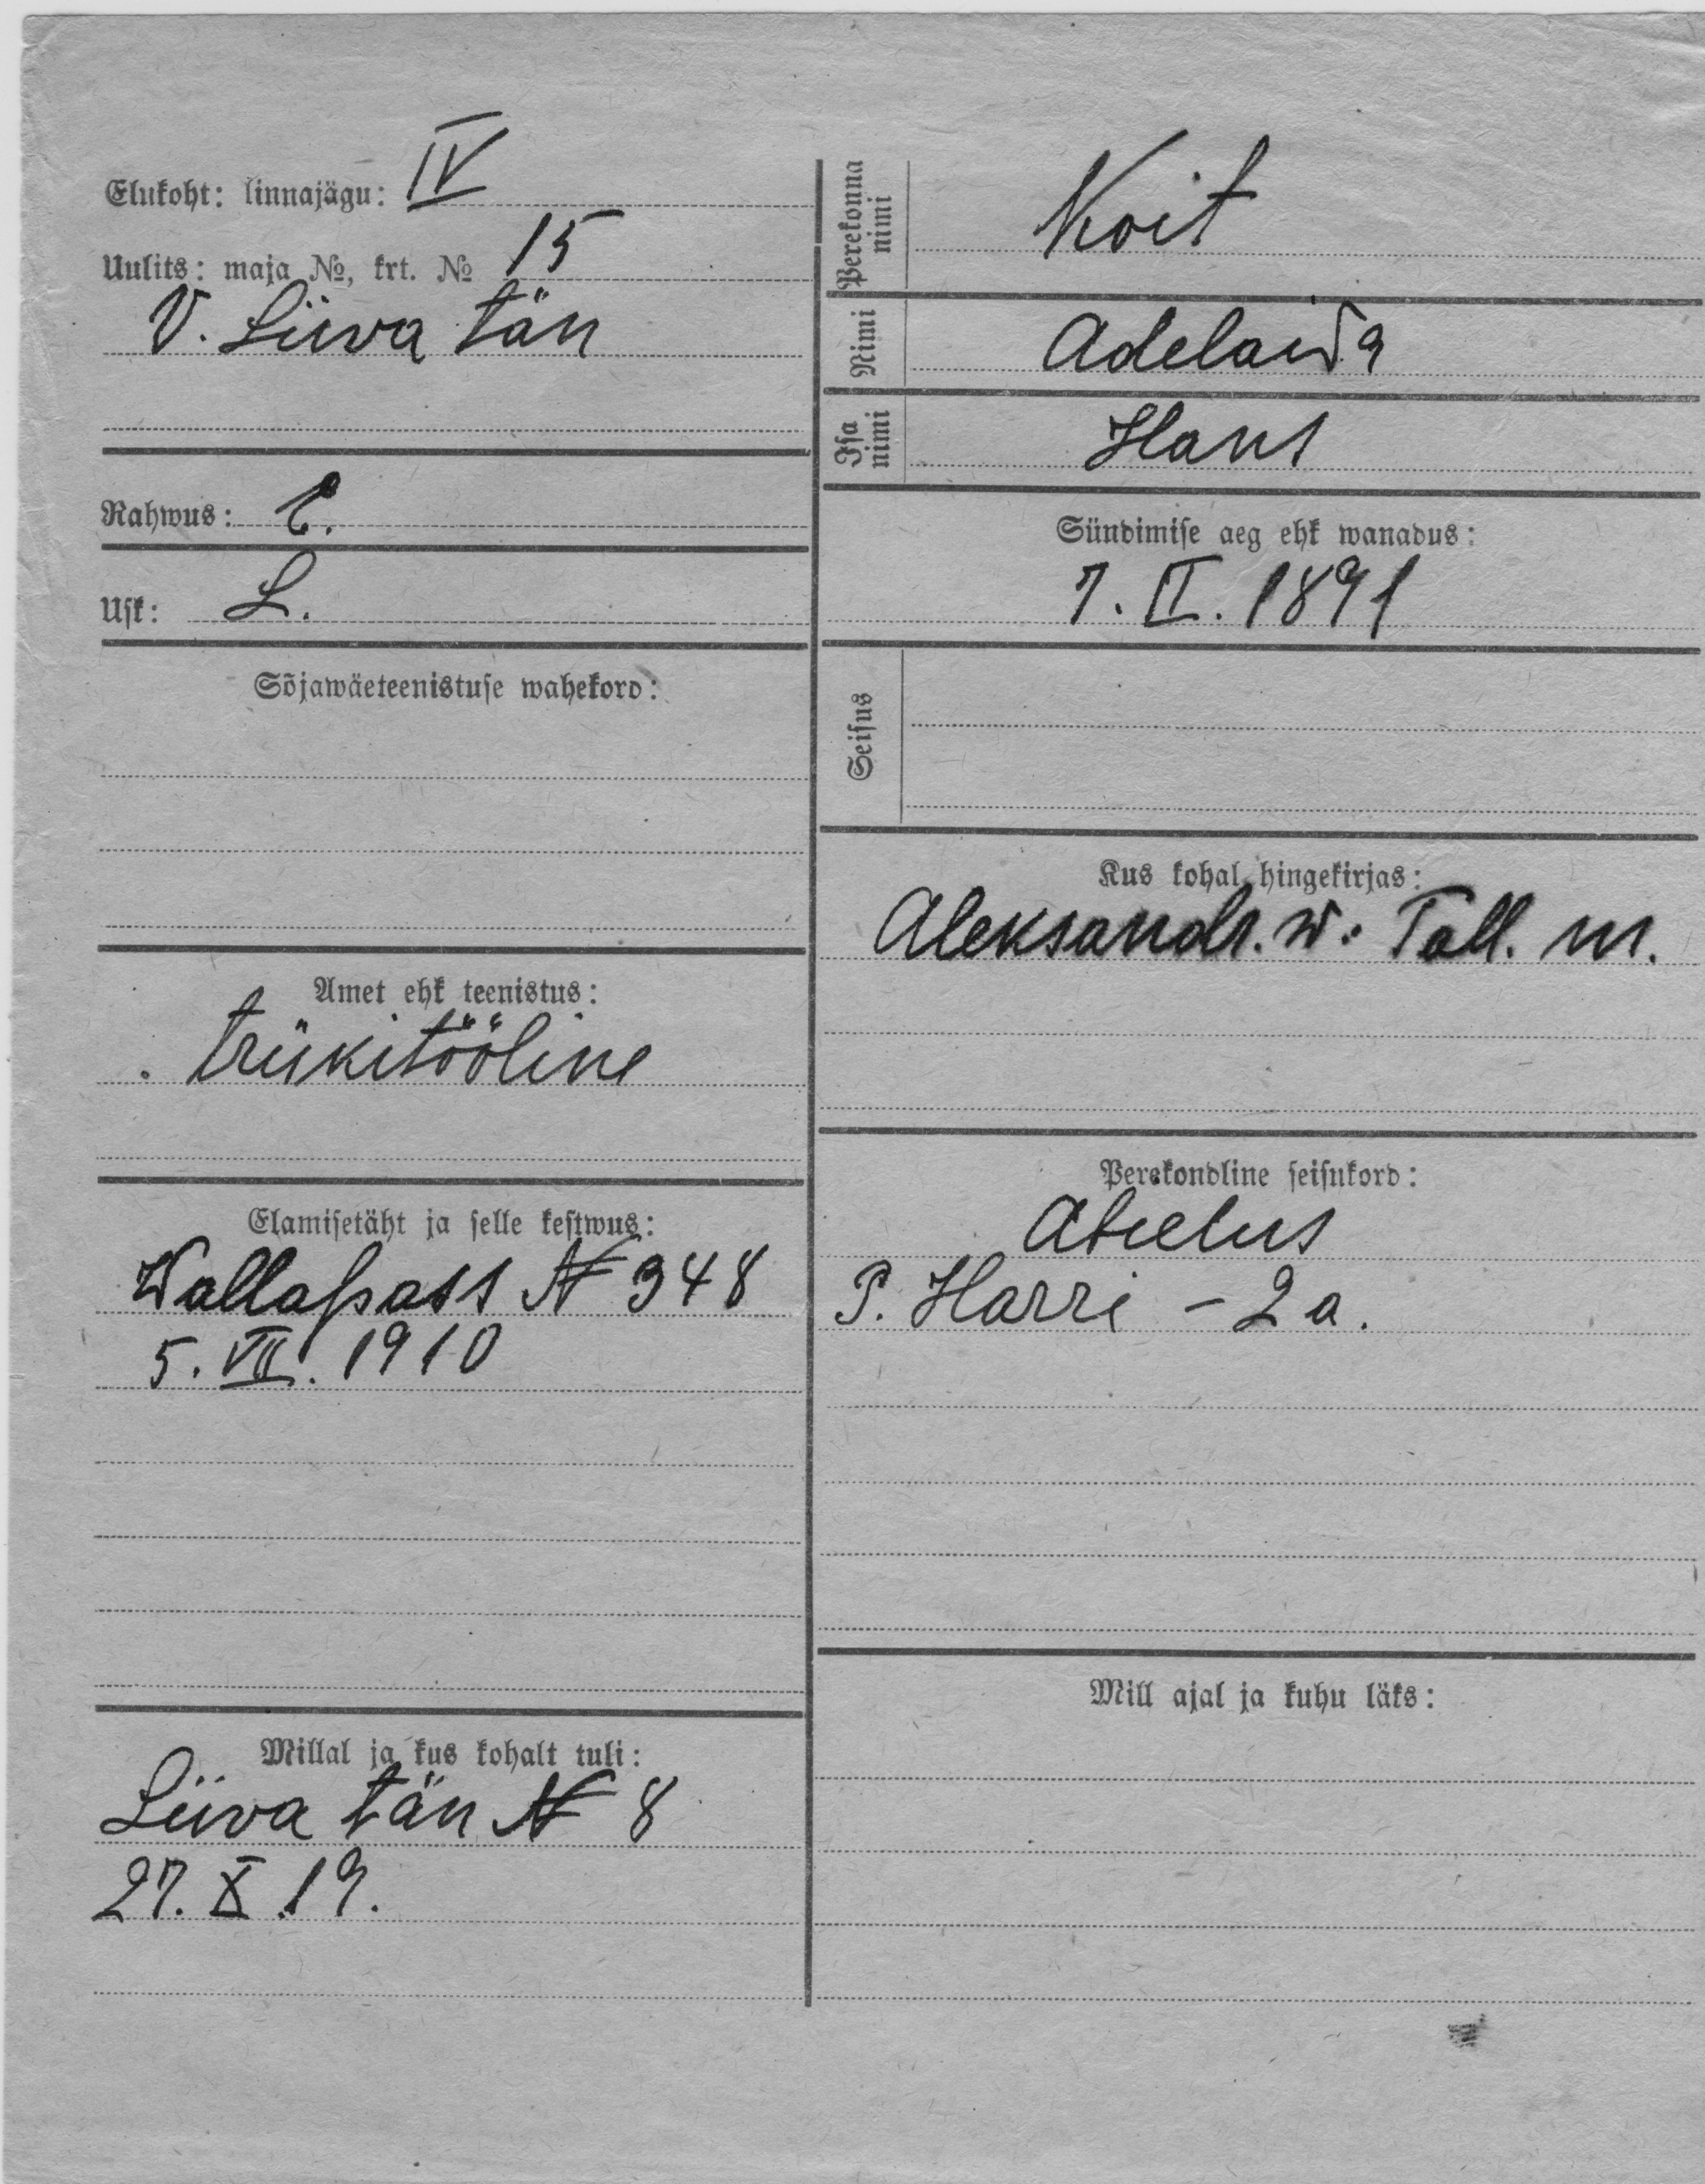 Elukoht: linnajägu: IV
Uulits: maja №, krt. № 15
V. Liiva tän
Rahwus: E.
Usk: L.
Sõjawäeteenistuse wahekord:
Amet ehk teenistus:
trükitööline
Elamisetäht ja selle kestwus:
Wallapass № 348
5. VII. 1910
Millal ja kus kohalt tuli:
Liiva tän № 8
27. X. 19.
Perekonna nimi
Koit
Nimi
Adelaida
Isa nimi
Hans
Sündimise aeg ehk wanadus:
7. II. 1891
Seisus
Kus kohal hingekirjas:
Aleksandr. w. Tall. m.
Perekondline seisukord:
Abielus
P. Harri - 2 a.
Mill ajal ja kuhu läks: